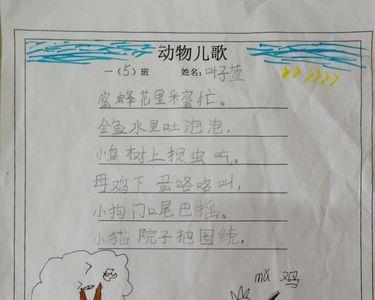 动物儿歌
一（5）班 姓名：叶子萱
蜜蜂花里采蜜忙。
金鱼水里吐泡泡，
小鸟树上捉虫吃。
母鸡下蛋咯咯叫，
小狗门口尾巴摇。
小猫院子把圈绕。
mǔ 鸡